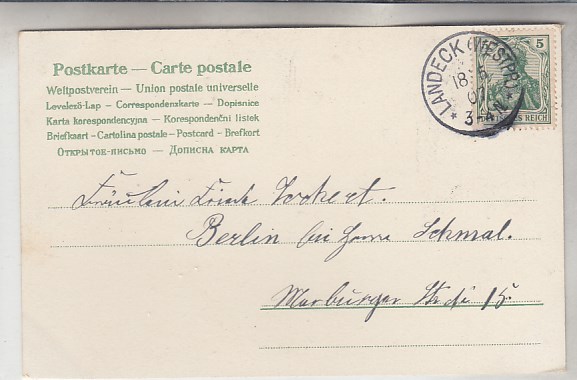 Postkarte — Carte postale
Weltpostverein — Union postale universelle
Levelező-Lap – Correspondenzkarte — Dopisnice
Karta korespondencyjna – Korespondenční lístek
Briefkaart – Cartolina postale – Postcard – Brefkort
Открыток-письмо — Дописна карта
LANDECK (WESTPR.)
18
07
3-4N
5
DEUTSCHES REICH
Fräulein Lockert.
Berlin bei Herrn Schmal.
Marburger Str. 15.